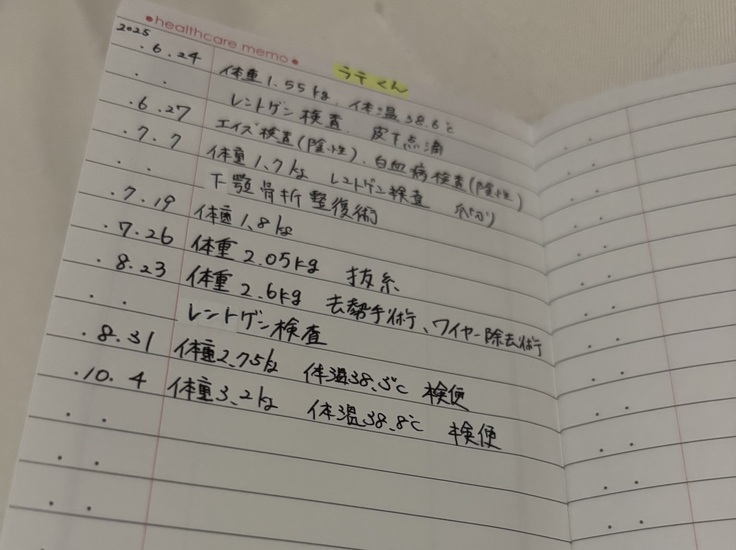 •healthcare memo•
2025
ラテくん
.6.24 体重1.55kg、体温38.6℃
レントゲン検査、皮下点滴
.6.27 エイズ検査(陰性)、白血病検査(陰性)
.7.7 体重1.7kg レントゲン検査 爪切り
下顎骨折整復術
.7.19 体重1.8kg
.7.26 体重2.05kg 抜糸
.8.23 体重2.6kg 去勢手術、ワイヤー除去術
レントゲン検査
.8.31 体重2.75kg 体温38.5℃ 検便
.10.4 体重3.2kg 体温38.8℃ 検便